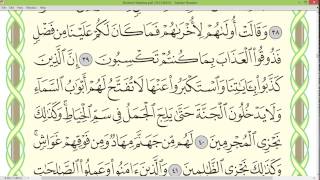 ٣٨ وَقَالَتْ أُولَىٰهُمْ لِأُخْرَىٰهُمْ فَمَا كَانَ لَكُمْ عَلَيْنَا مِن فَضْلٍ
فَذُوقُوا۟ ٱلْعَذَابَ بِمَا كُنتُمْ تَكْسِبُونَ ٣٩ إِنَّ ٱلَّذِينَ
كَذَّبُوا۟ بِـَٔايَـٰتِنَا وَٱسْتَكْبَرُوا۟ عَنْهَا لَا تُفَتَّحُ لَهُمْ أَبْوَٰبُ ٱلسَّمَآءِ
وَلَا يَدْخُلُونَ ٱلْجَنَّةَ حَتَّىٰ يَلِجَ ٱلْجَمَلُ فِى سَمِّ ٱلْخِيَاطِ ۚ وَكَذَٰلِكَ
نَجْزِى ٱلْمُجْرِمِينَ ٤٠ لَهُم مِّن جَهَنَّمَ مِهَادٌ وَمِن فَوْقِهِمْ غَوَاشٍ ۚ
وَكَذَٰلِكَ نَجْزِى ٱلظَّـٰلِمِينَ ٤١ وَٱلَّذِينَ ءَامَنُوا۟ وَعَمِلُوا۟ ٱلصَّـٰلِحَـٰتِ